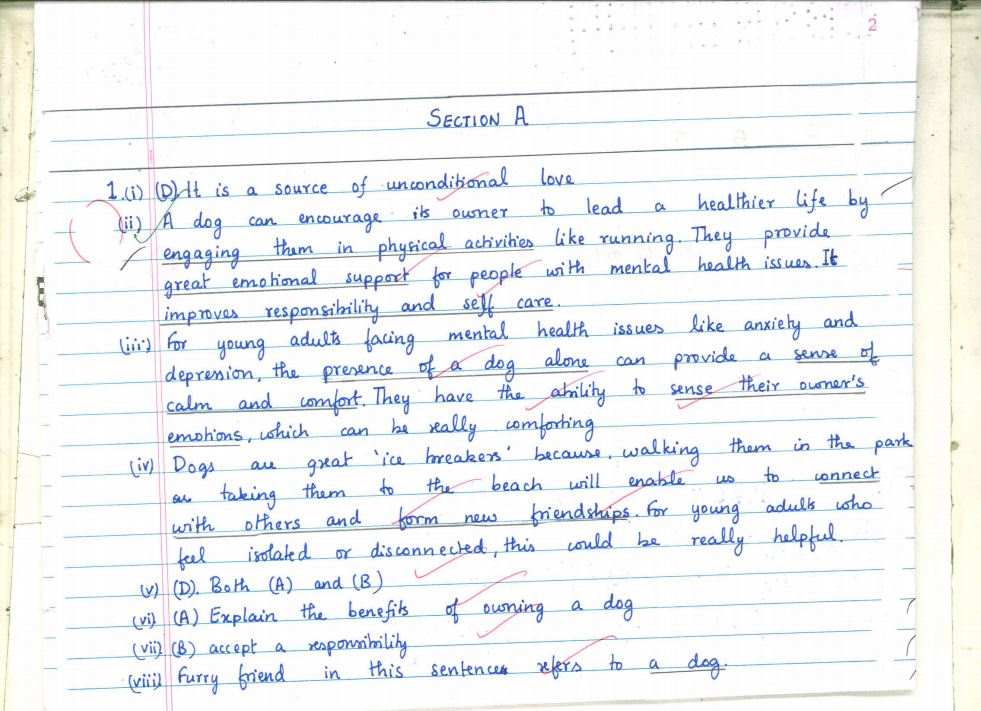 2
SECTION A
1.(i) (D) It is a source of unconditional love
(ii) A dog can encourage its owner to lead a healthier life by
engaging them in physical activities like running. They provide
great emotional support for people with mental health issues. It
improves responsibility and self care.
(iii) For young adults facing mental health issues like anxiety and
depression, the presence of a dog alone can provide a sense of
calm and comfort. They have the ability to sense their owner's
emotions, which can be really comforting
(iv) Dogs are great 'ice breakers' because, walking them in the park
or taking them to the beach will enable us to connect
with others and form new friendships. For young adults who
feel isolated or disconnected, this could be really helpful.
(v) (D). Both (A) and (B)
(vi) (A) Explain the benefits of owning a dog
(vii) (B) accept a responsibility
(viii) Furry friend in this sentences refers to a dog.